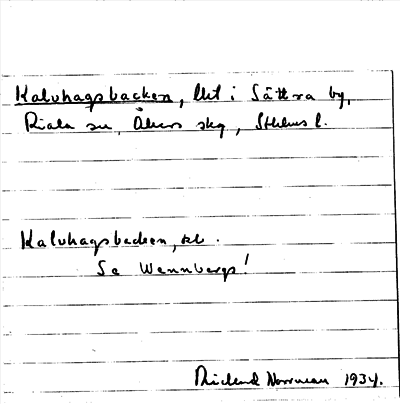 Kalvhagsbacken, lht i Sättra by,
Riala sn, Åkers skg, Sthlms l.
Kalvhagsbacken, tr.
Se Wennbergs!
Richard Norrman 1934.